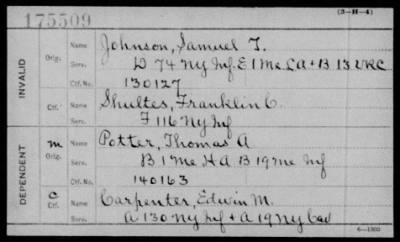 175509
(3-H-4)
INVALID
Orig. Name Johnson, Samuel T.
Serv. D 74 Ny Inf. E 1 Me C A + B 13 VRC
Ctf. No. 130127
Ctf. Name Shultes, Franklin C.
Serv. F 116 Ny Inf
DEPENDENT
m Orig. Name Potter, Thomas A
Serv. B 1 Me H A B 19 Me Inf
Ctf. No. 140163
C Ctf. Name Carpenter, Edwin M.
Serv. A 130 Ny Inf + A 19 Ny Cav
6-1300